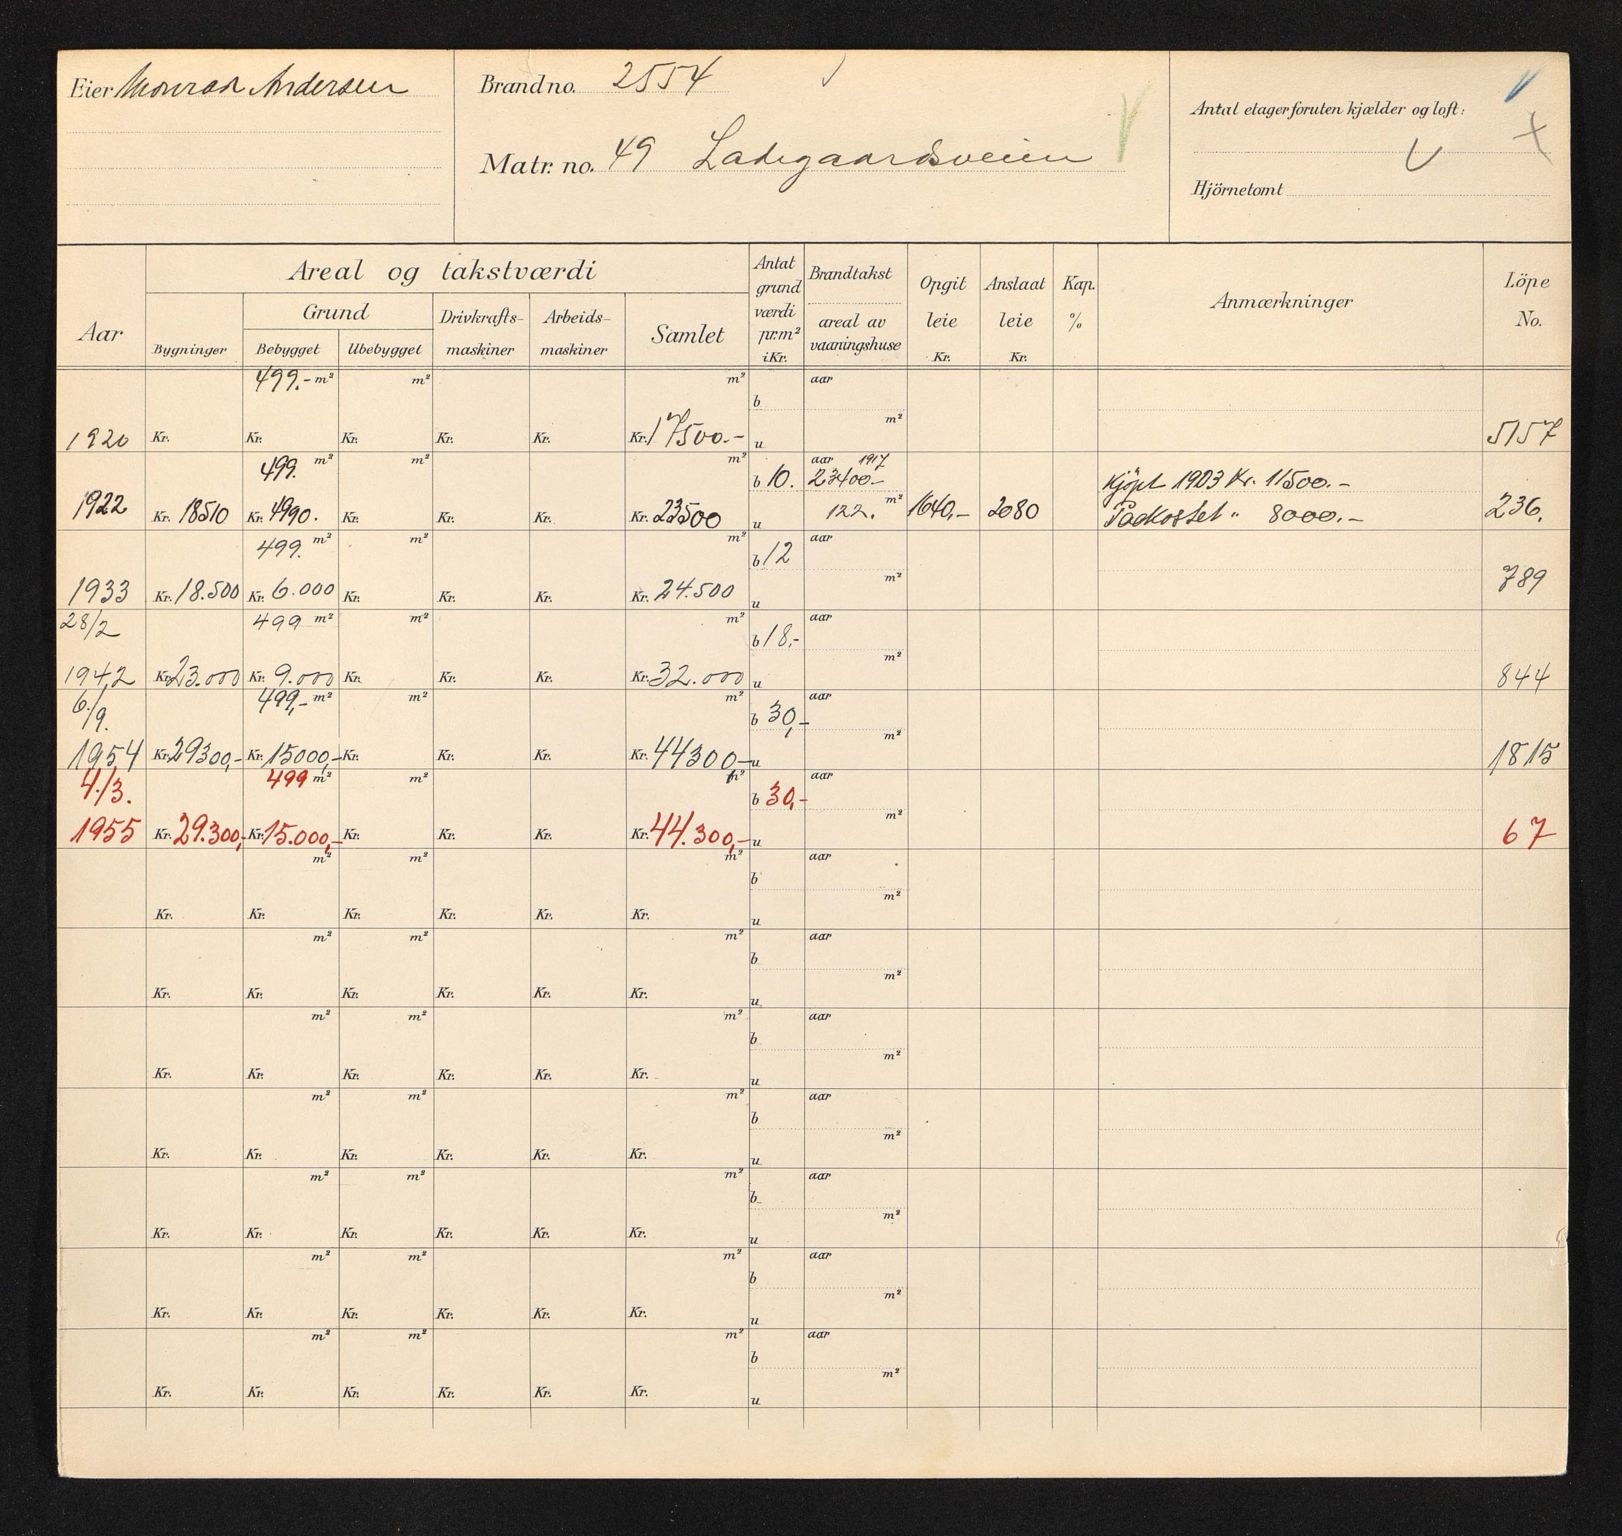 Eier Monrad Andersen
Brand no. 2554
Matr. no. 49 Ladegaardsveien
Antal etager foruten kjælder og loft:
Hjörnetomt
Aar
Areal og takstværdi
Grund
Bygninger
Bebygget
Ubebygget
Drivkrafts-
maskiner
Arbeids-
maskiner
Samlet
Antat
grund
værdi
pr.m²
i Kr.
Brandtakst
areal av
vaaningshuse
Opgit
leie
Kr.
Anslaat
leie
Kr.
Kap.
%
Anmærkninger
Löpe
No.
499.- m² m² m² b aar
m²
1920 Kr. Kr. Kr. Kr. Kr. Kr. 17500.- u 5157
499. m² m² m² b 10. aar 1917 23400.- Kjöpt 1903 Kr. 11500.-
1922 Kr. 18510 Kr. 4990. Kr. Kr. Kr. Kr. 23500 u 122. m² 1640,- 2080 Paakostet " 8000.- 236.
499. m² m² m² b 12 aar
m²
1933 Kr. 18.500 Kr. 6.000 Kr. Kr. Kr. Kr. 24.500 u 789
28/2 499 m² m² m² b 18.- aar
m²
1942 Kr. 23.000 Kr. 9.000 Kr. Kr. Kr. Kr. 32.000 u 844
6./9. 499,- m² m² m² b 30,- aar
m²
1954 Kr. 29300,- Kr. 15000,- Kr. Kr. Kr. Kr. 44300- u 1815
4./3. 499 m² m² m² b 30,- aar
m²
1955 Kr. 29.300,- Kr. 15.000,- Kr. Kr. Kr. Kr. 44.300,- u 67
m² m² m² b aar
m²
Kr. Kr. Kr. Kr. Kr. Kr. u
m² m² m² b aar
m²
Kr. Kr. Kr. Kr. Kr. Kr. u
m² m² m² b aar
m²
Kr. Kr. Kr. Kr. Kr. Kr. u
m² m² m² b aar
m²
Kr. Kr. Kr. Kr. Kr. Kr. u
m² m² m² b aar
m²
Kr. Kr. Kr. Kr. Kr. Kr. u
m² m² m² b aar
m²
Kr. Kr. Kr. Kr. Kr. Kr. u
m² m² m² b aar
m²
Kr. Kr. Kr. Kr. Kr. Kr. u